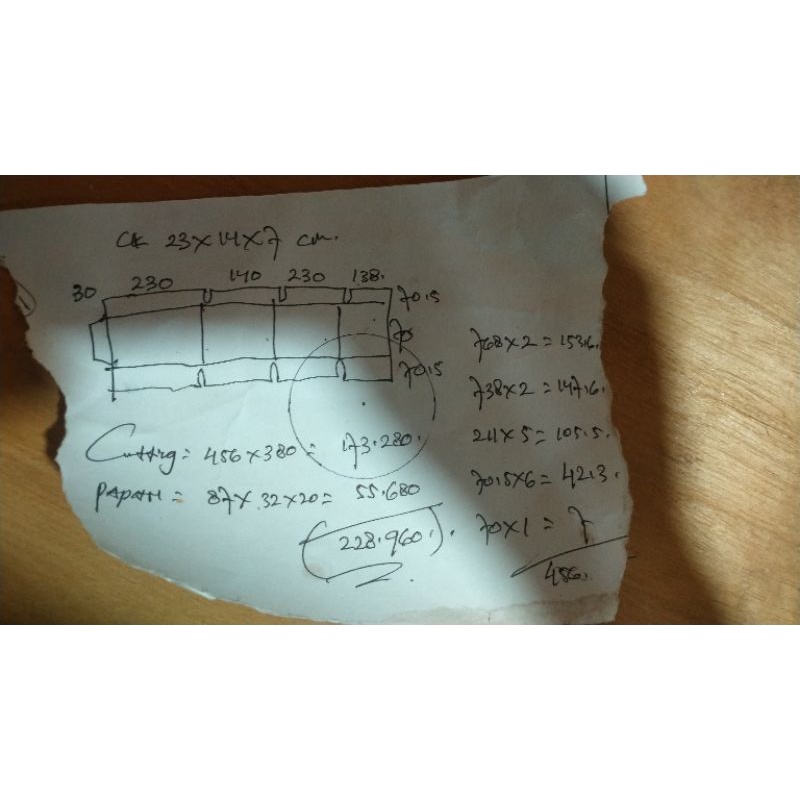 CK 23x14x7 cm.
30 230 140 230 138.
70.5
70
70.5
768x2 = 153.6.
738x2 = 147.6.
211x5 = 105.5.
70.5x6 = 42.3.
70x1 = 7
456.
Cutting = 456x380 = 173.280.
PAPAN = 87x32x20 = 55.680
228.960.